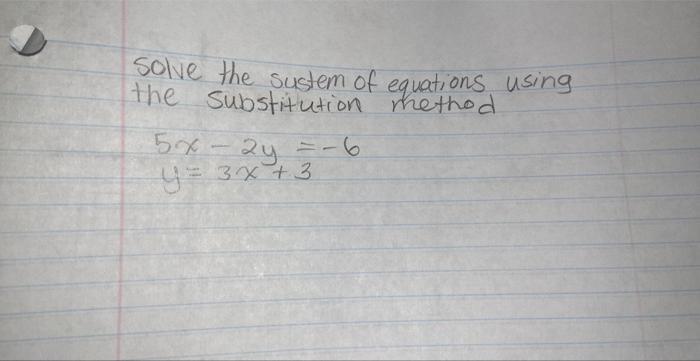 solve the system of equations using
the substitution method
5x - 2y = -6
y = 3x + 3